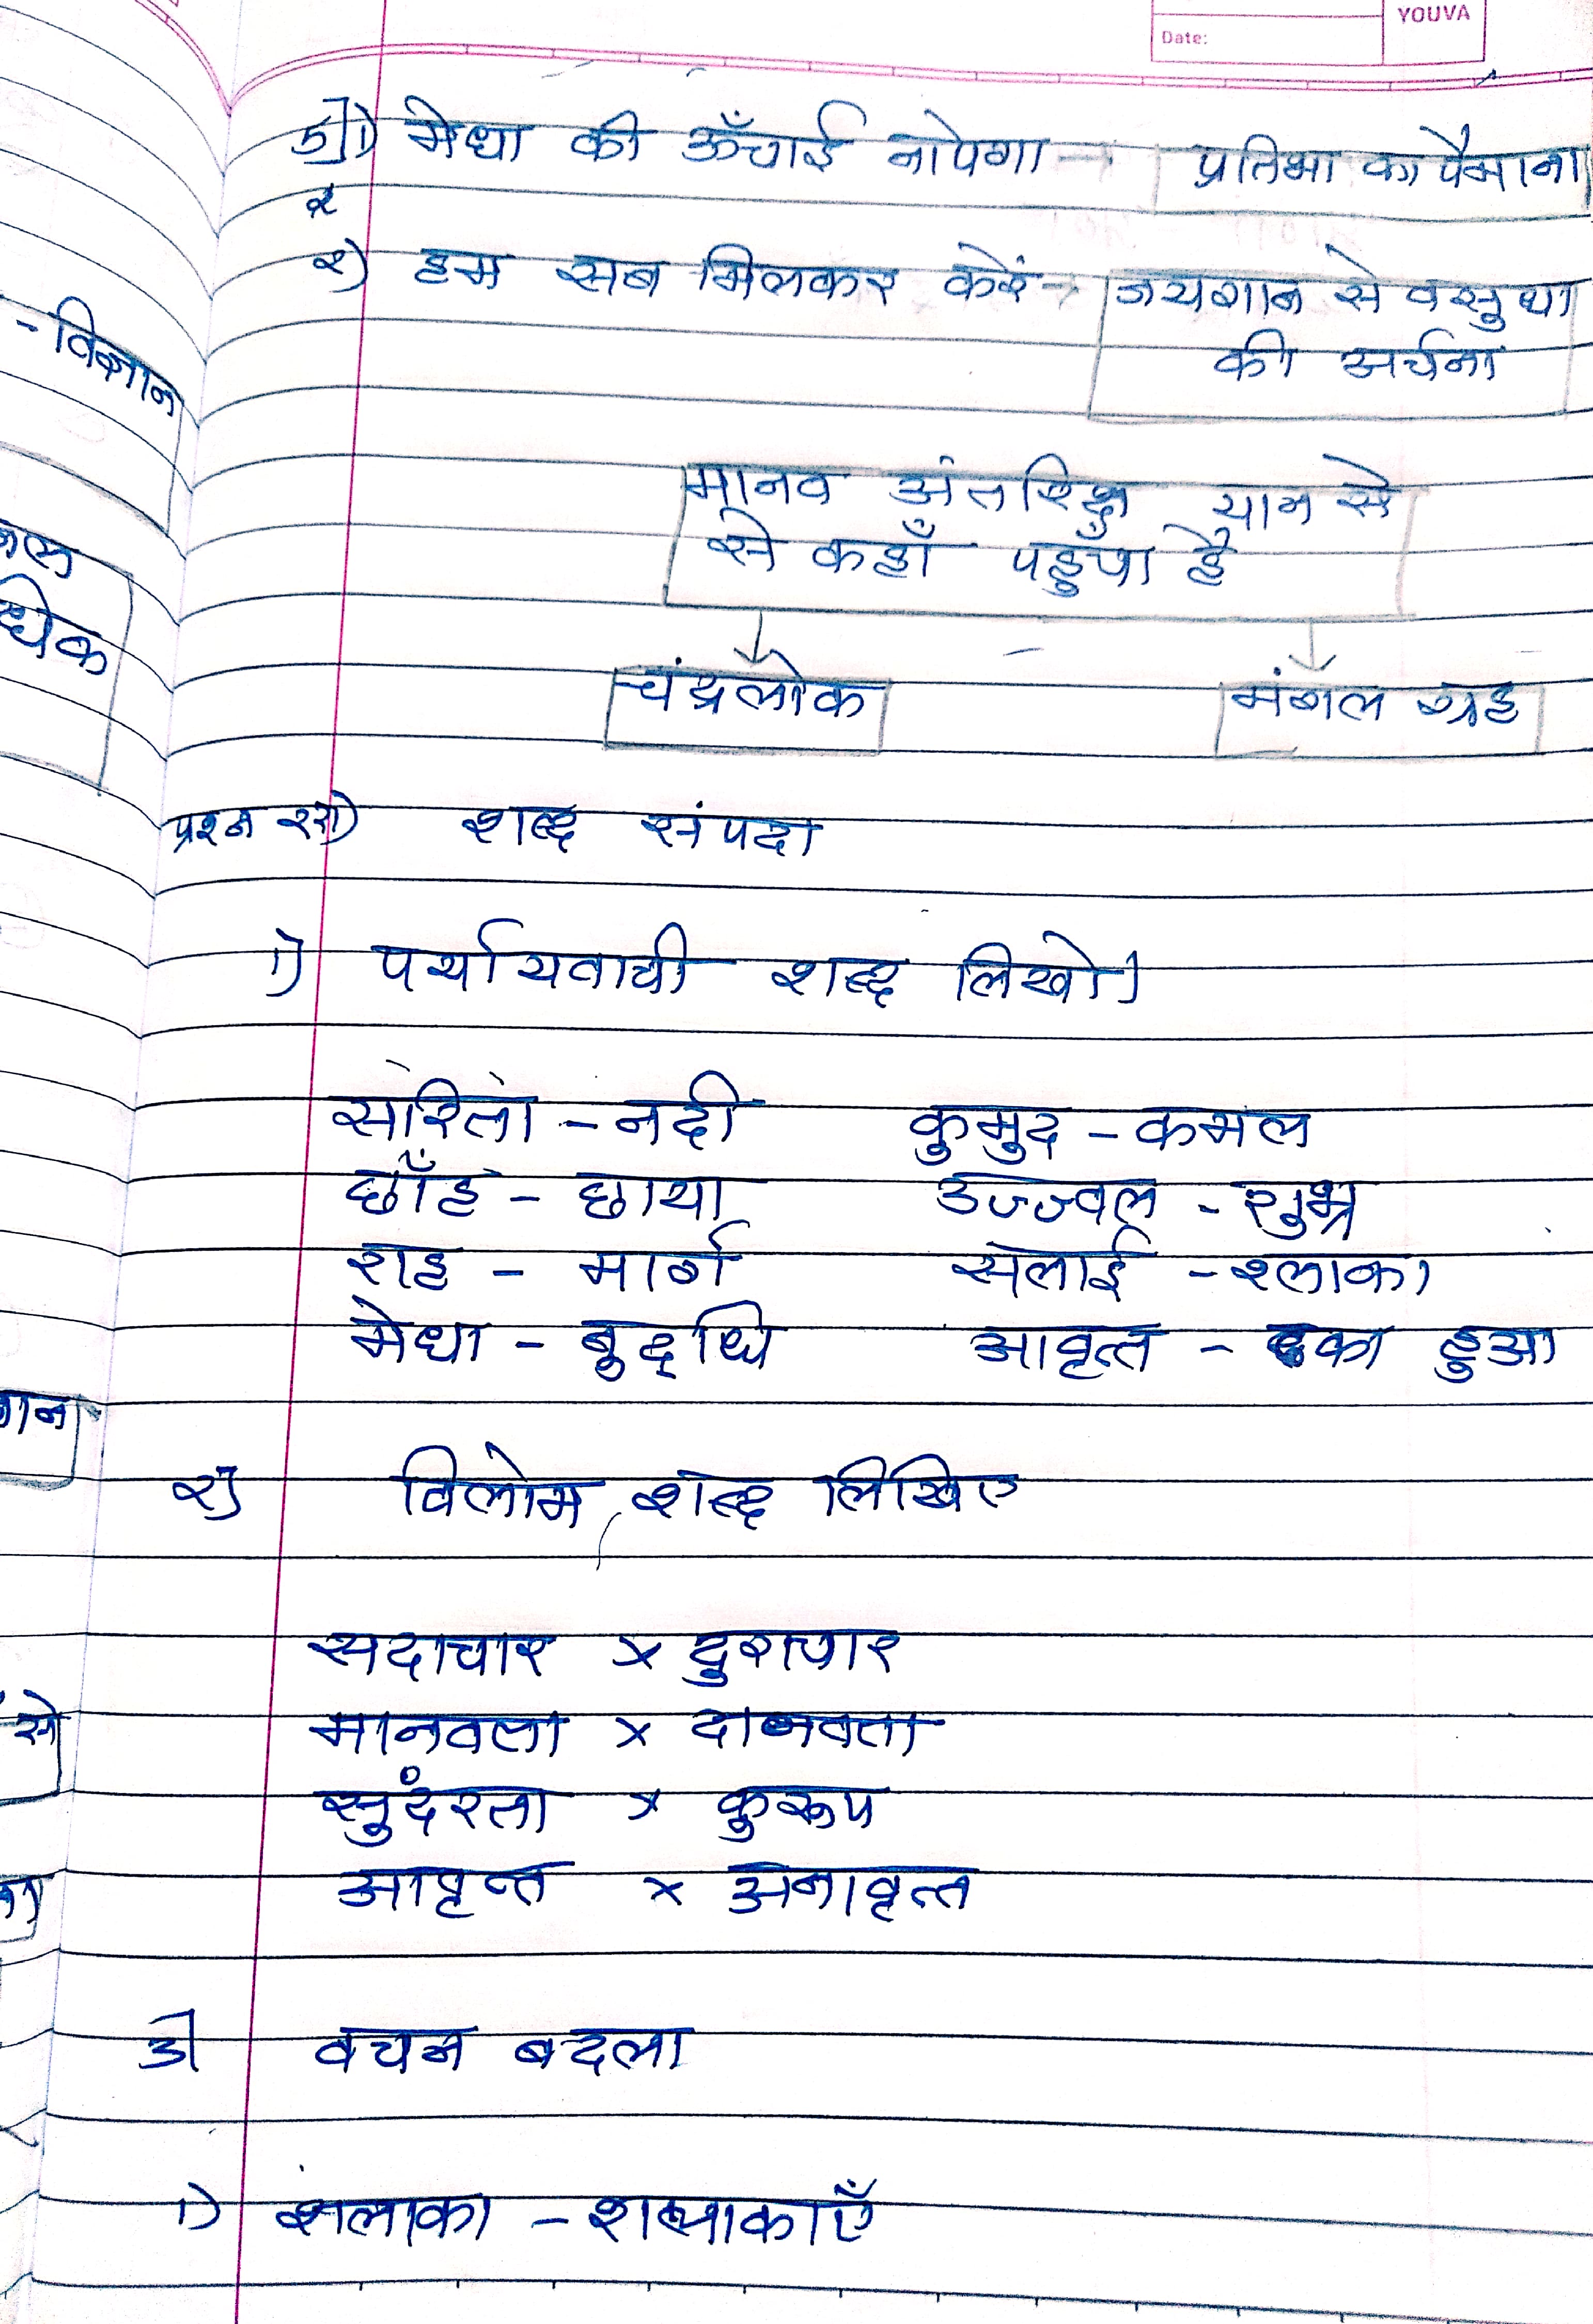 YOUVA
Date:
5)1) मेधा की ऊँचाई नापेगा → प्रतिभा का पैमाना
२
२) हम सब मिलकर करें → जयगान से वसुधा
की अर्चना
मानव अंतरिक्ष यान से
से कहाँ पहुँचा है
चंद्रलोक मंगल ग्रह
प्रश्न २रा) शब्द संपदा
1) पर्यायवाची शब्द लिखो।
सरिता - नदी कुमुद - कमल
छाँह - छाया उज्ज्वल - शुभ्र
राह - मार्ग सलाई - श्लाका
मेधा - बुद्धि आवृत्त - ढका हुआ
२) विलोम शब्द लिखिए
सदाचार x दुराचार
मानवता x दानवता
सुंदरता x कुरूप
आवृत्त x अनावृत्त
3) वचन बदला
1) शलाका - शलाकाएँ
- विज्ञान
धेक
गान
से